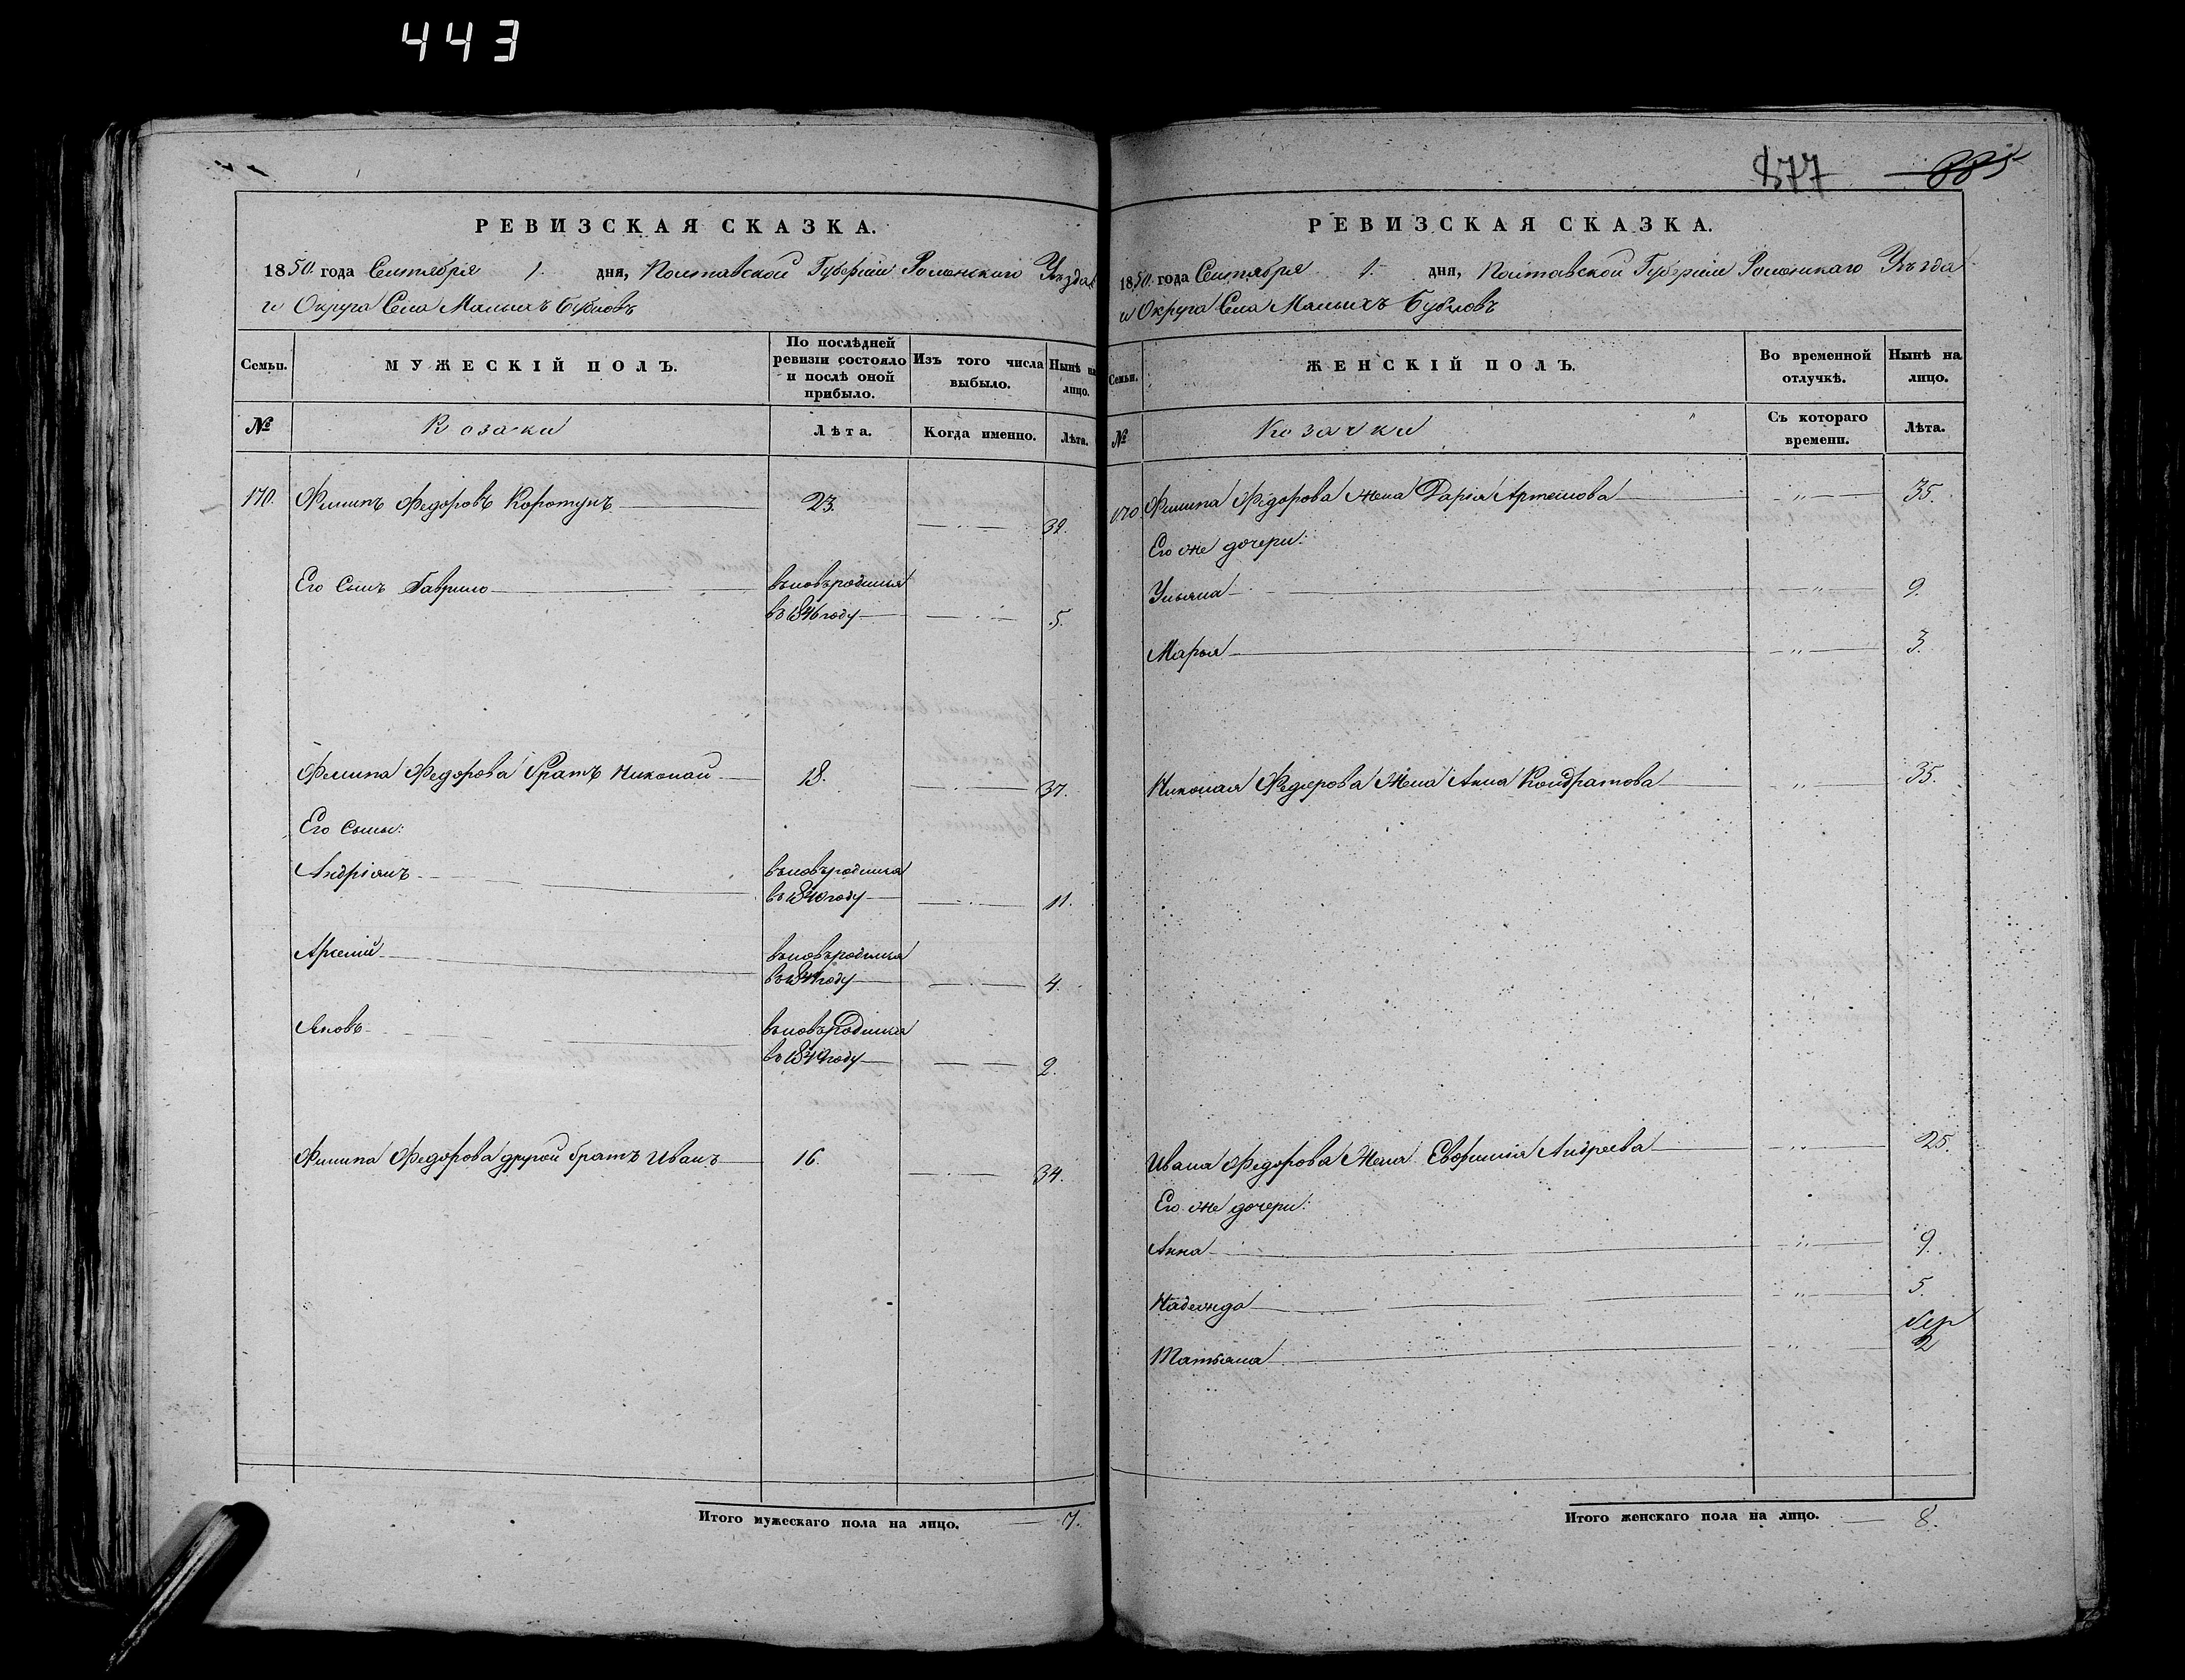 443
РЕВИЗСКАЯ СКАЗКА.
1850. года Сентября 1. дня, Полтавской Губерніи Роменскаго Уѣзда
и Округа Села Малыхъ Бубновъ
Семьи. МУЖЕСКІЙ ПОЛЪ. По послѣдней ревизіи состояло и послѣ оной прибыло. Изъ того числа выбыло. Нынѣ на лицо.
№ Козаки Лѣта. Когда именно. Лѣта.
170. Филипъ Федоровъ Коротунъ 23. 32.
Его Сынъ Гаврило вновьродился
въ 1846 году 5.
Филипа Федорова братъ Николай 18. 37.
Его Сыны:
Андріянъ вновьродился
въ 1840 году 11.
Арсеній вновьродился
въ году 4.
Яковъ вновьродился
въ 1849 году 2.
Филипа Федорова другой братъ Иванъ 16. 34.
Итого мужескаго пола на лицо. 7.
877 885
РЕВИЗСКАЯ СКАЗКА.
1850. года Сентября 1. дня, Полтавской Губерніи Роменскаго Уѣзда
и Округа Села Малыхъ Бубновъ
Семьи. ЖЕНСКІЙ ПОЛЪ. Во временной отлучкѣ. Нынѣ на лицо.
№ Козачки Съ котораго времени. Лѣта.
170. Филипа Федорова Жена Дарія Артемова 35.
Его же дочери:
Ульяна 9.
Марья 3.
Николая Федорова Жена Анна Кондратова 35.
Ивана Федорова Жена Евфимія Андреева 25.
Его же дочери:
Анна 9.
Надежда 5.
Татьяна 2
Итого женскаго пола на лицо. 8.